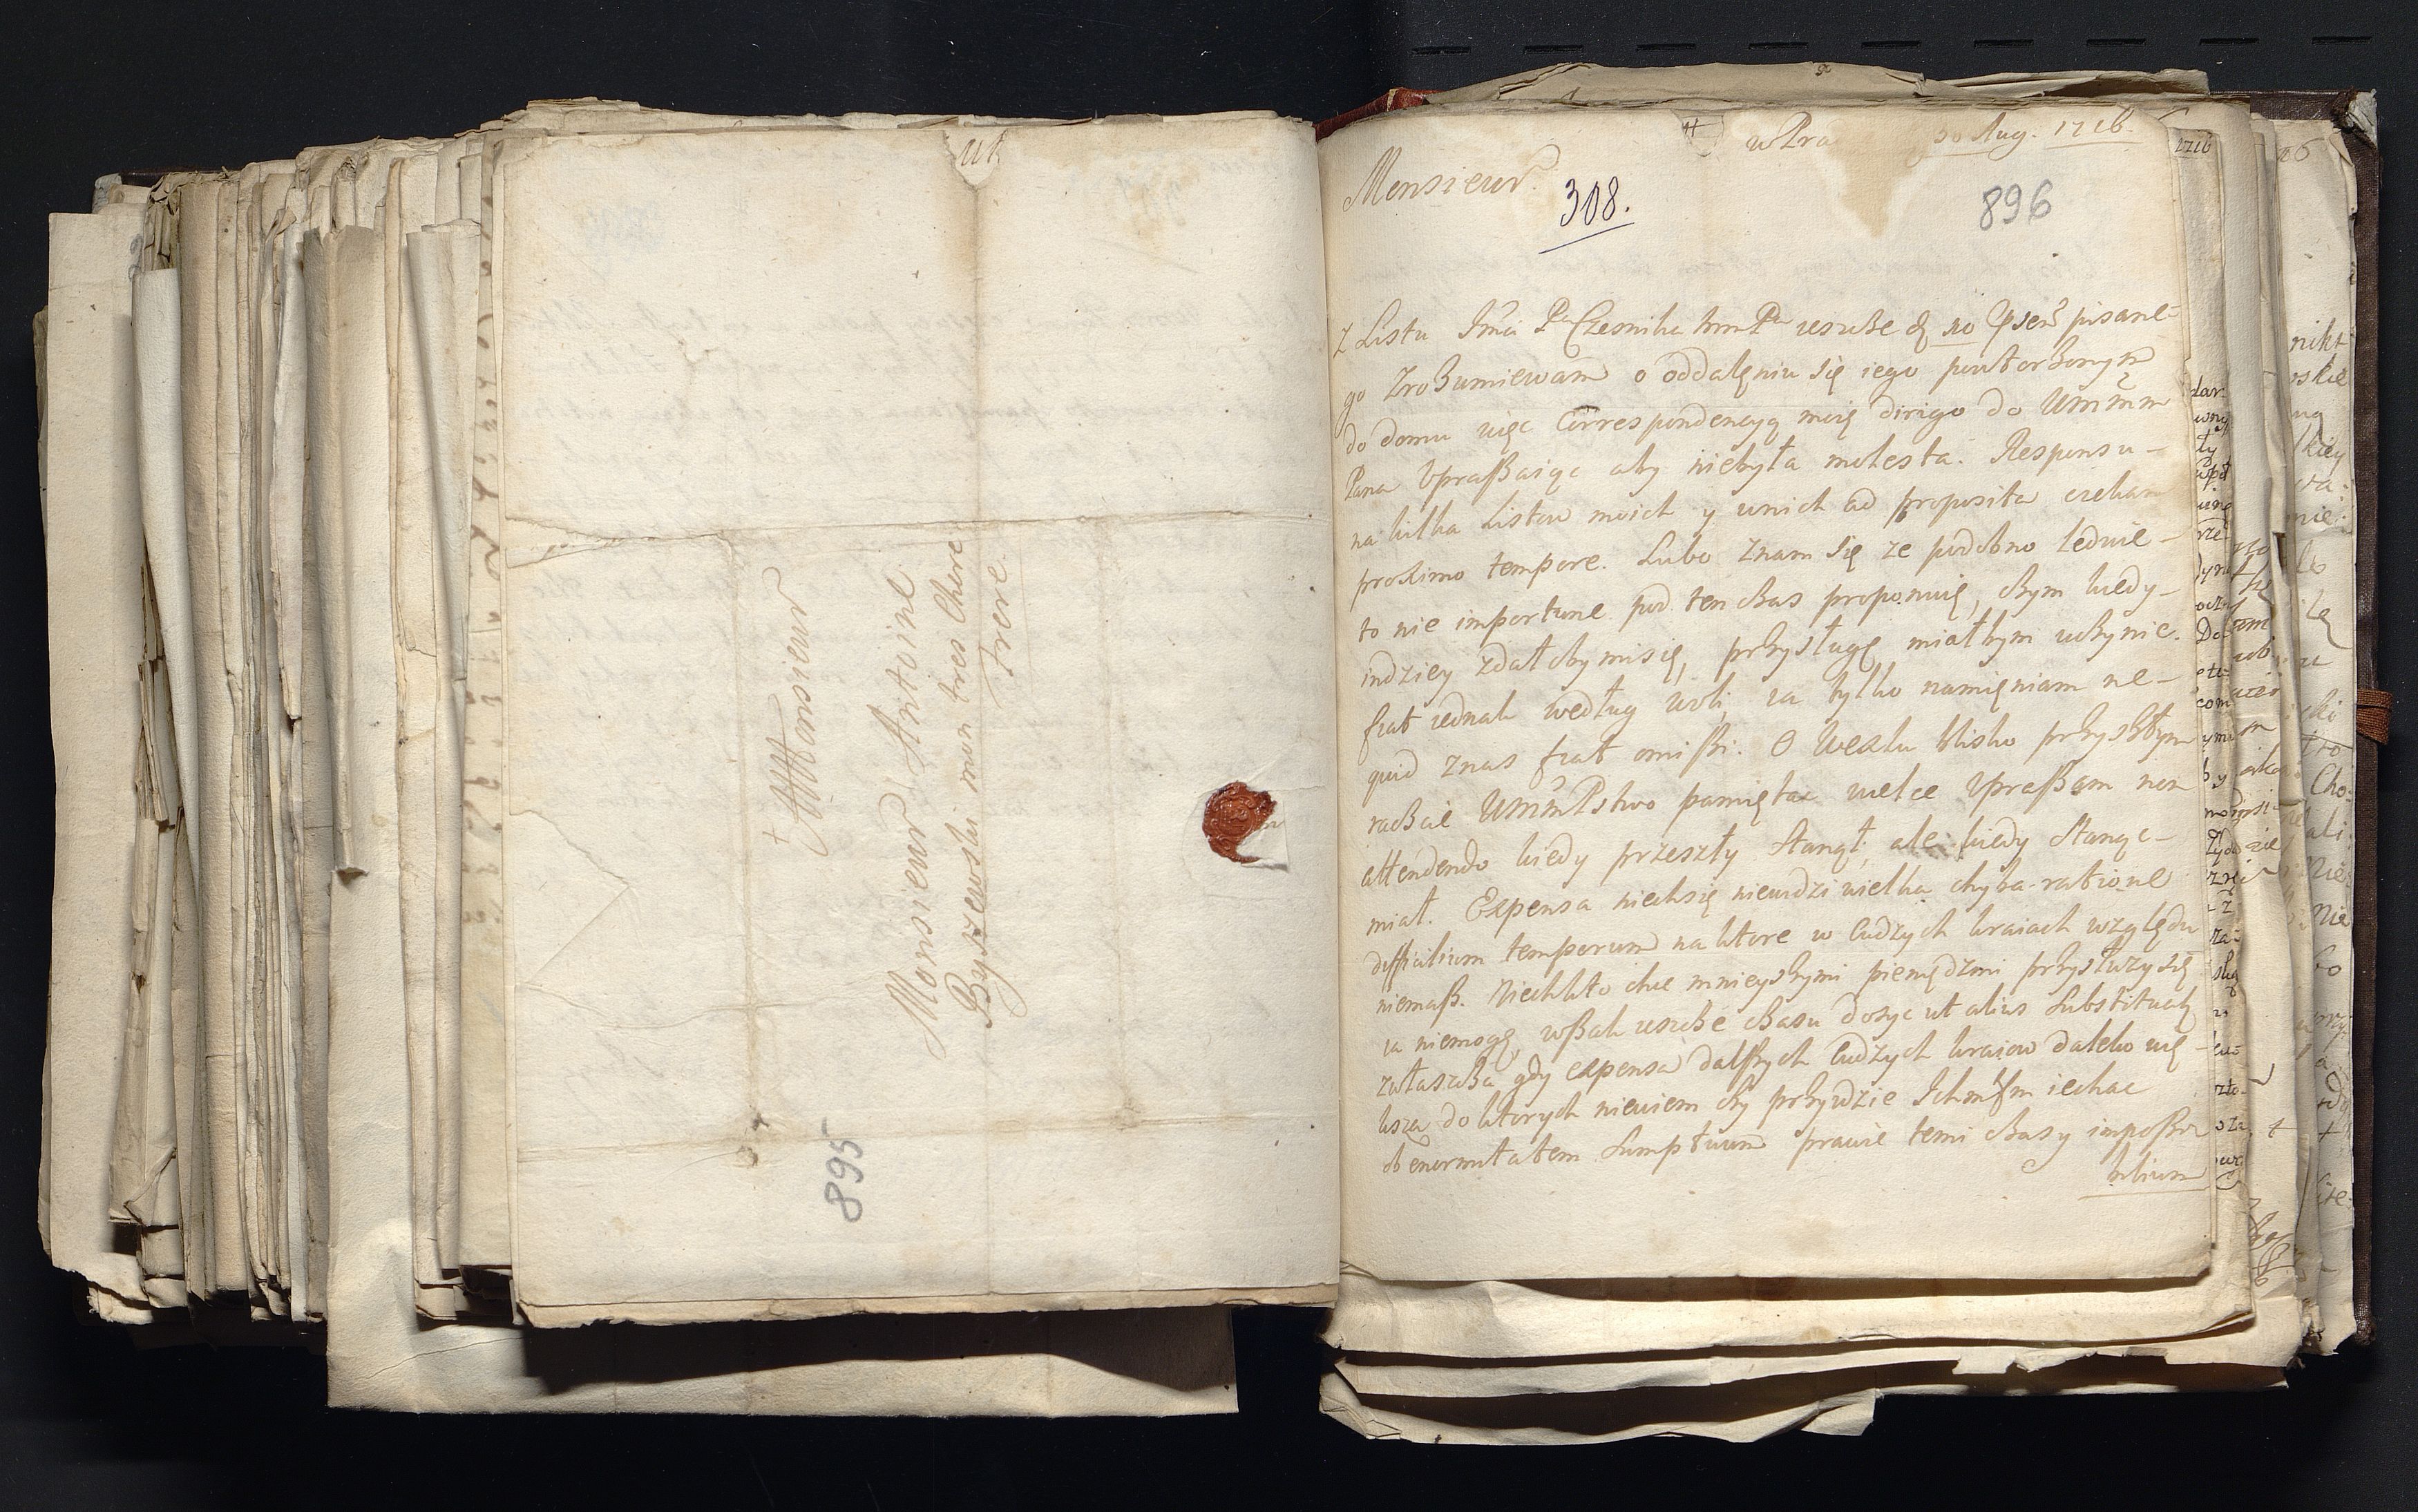 A Monsieur
Monsieur Antoine
Byszewski mon tres Chere
Frere.
895
w Pra 30 Aug. 1716.
Monsieur.
308.
896
Z Listu Imci Pa Czesnika mm Pa ieszcze 10 psen pisane-
go Zrozumiewam o oddalęniu się iego powtorzonym
do domu więc Correspondencyą moię dirigo do Umm
Pana Upraszaiąc aby niebyła molesta. Responsu-
na kilka Listow moich y wnich ad proposita czekam
proximo tempore. Lubo znam się ze podobno ledwie-
to nie importune pod ten czas proponuię, czym kiedy-
indziey zdałoby misię, przysługę miałbym uczynic.
fiat iednak według woli, ia tylko namięniam ne-
quid znas fiat omissi. O Wexlu blisko przyszłym
raczcie UmmPstwo pamiętac wielce Upraszam non
attendendo kiedy przeszły stanął, ale kiedy stanąc-
miał. Expensa niechsię niewidzi wielka chyba ratione
difficilium temporum na ktore w Cudzych kraiach względu
niemasz. Niechkto chce mnieyszymi pieniędzmi przysłuzy się
ia niemogę, wszak ieszcze czasu dosyc ut alius Substituatur
zwłaszcza gdy expensa dalszych Cudzych kraiow daleko wię-
ksza do ktorych niewiem czy przyidzie Ichm iechac
ob enormitatem Sumptuum prawie temi czasy impossi
bilium